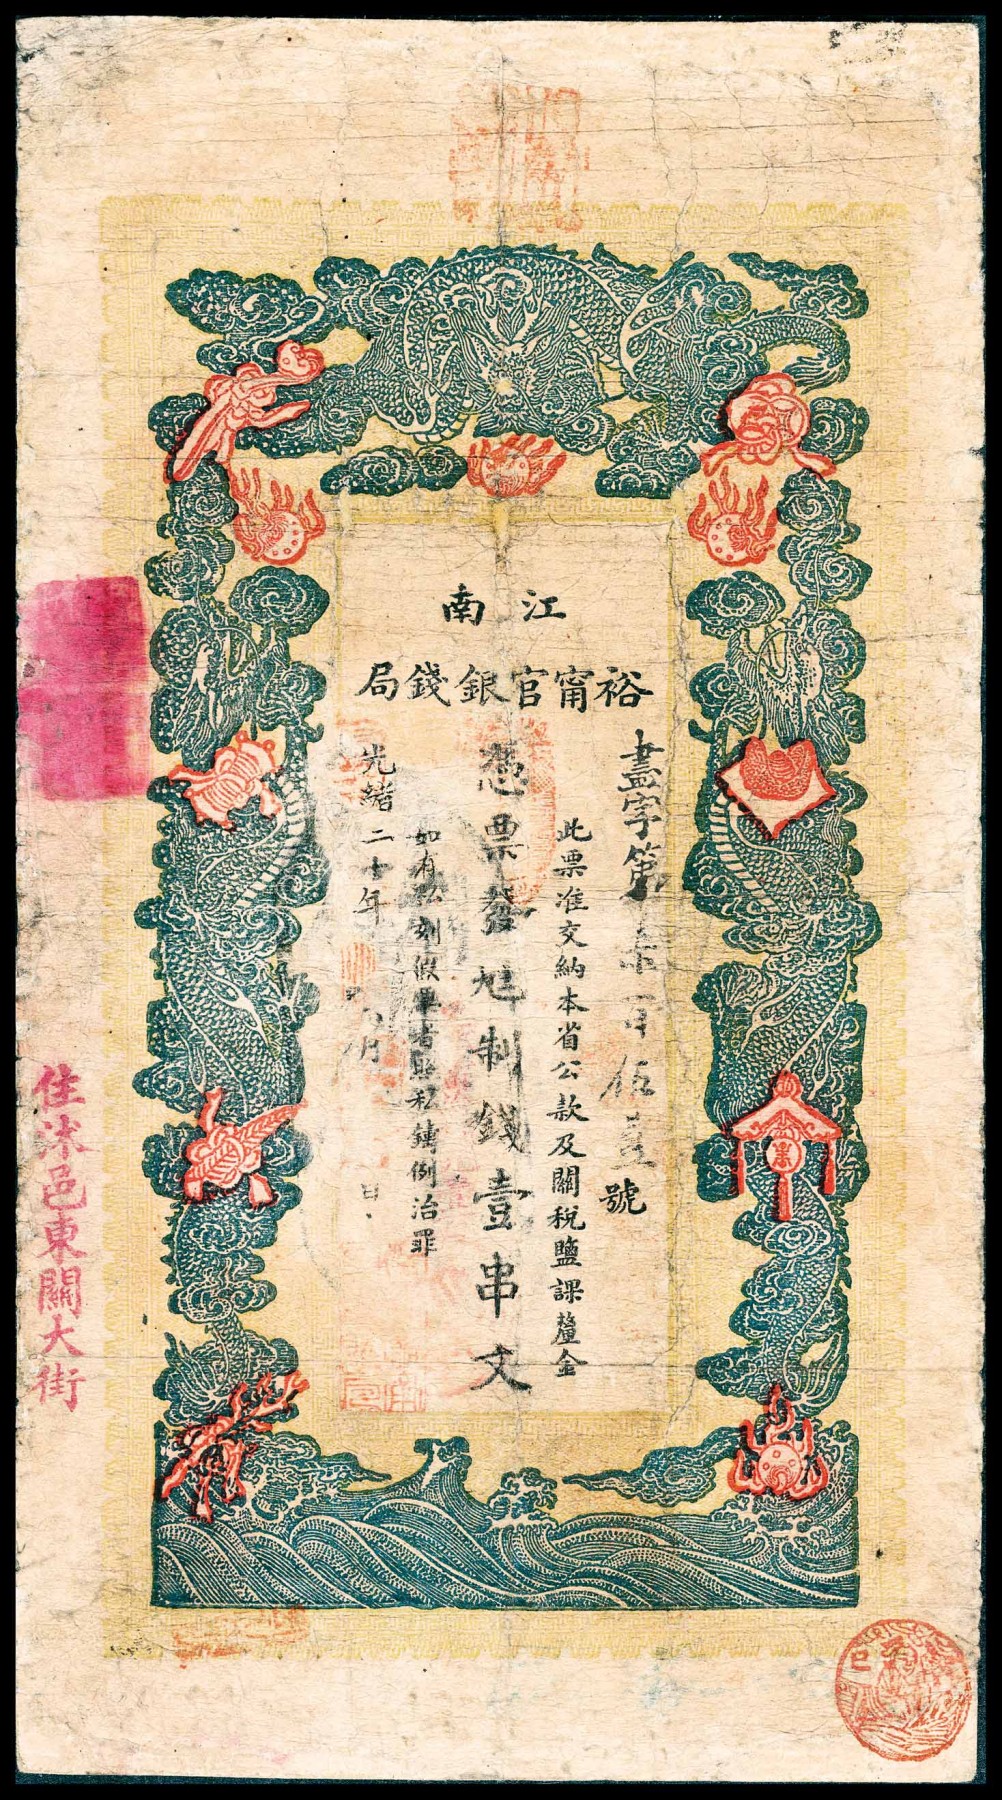 江南
裕甯官銀錢局
盡字第 百伍壹號
此票准交納本省公款及關稅鹽課釐金
憑票發足制錢壹串文
如有私刻假單者照私鑄例治罪
光緒二十年 月 日
住沭邑東關大街